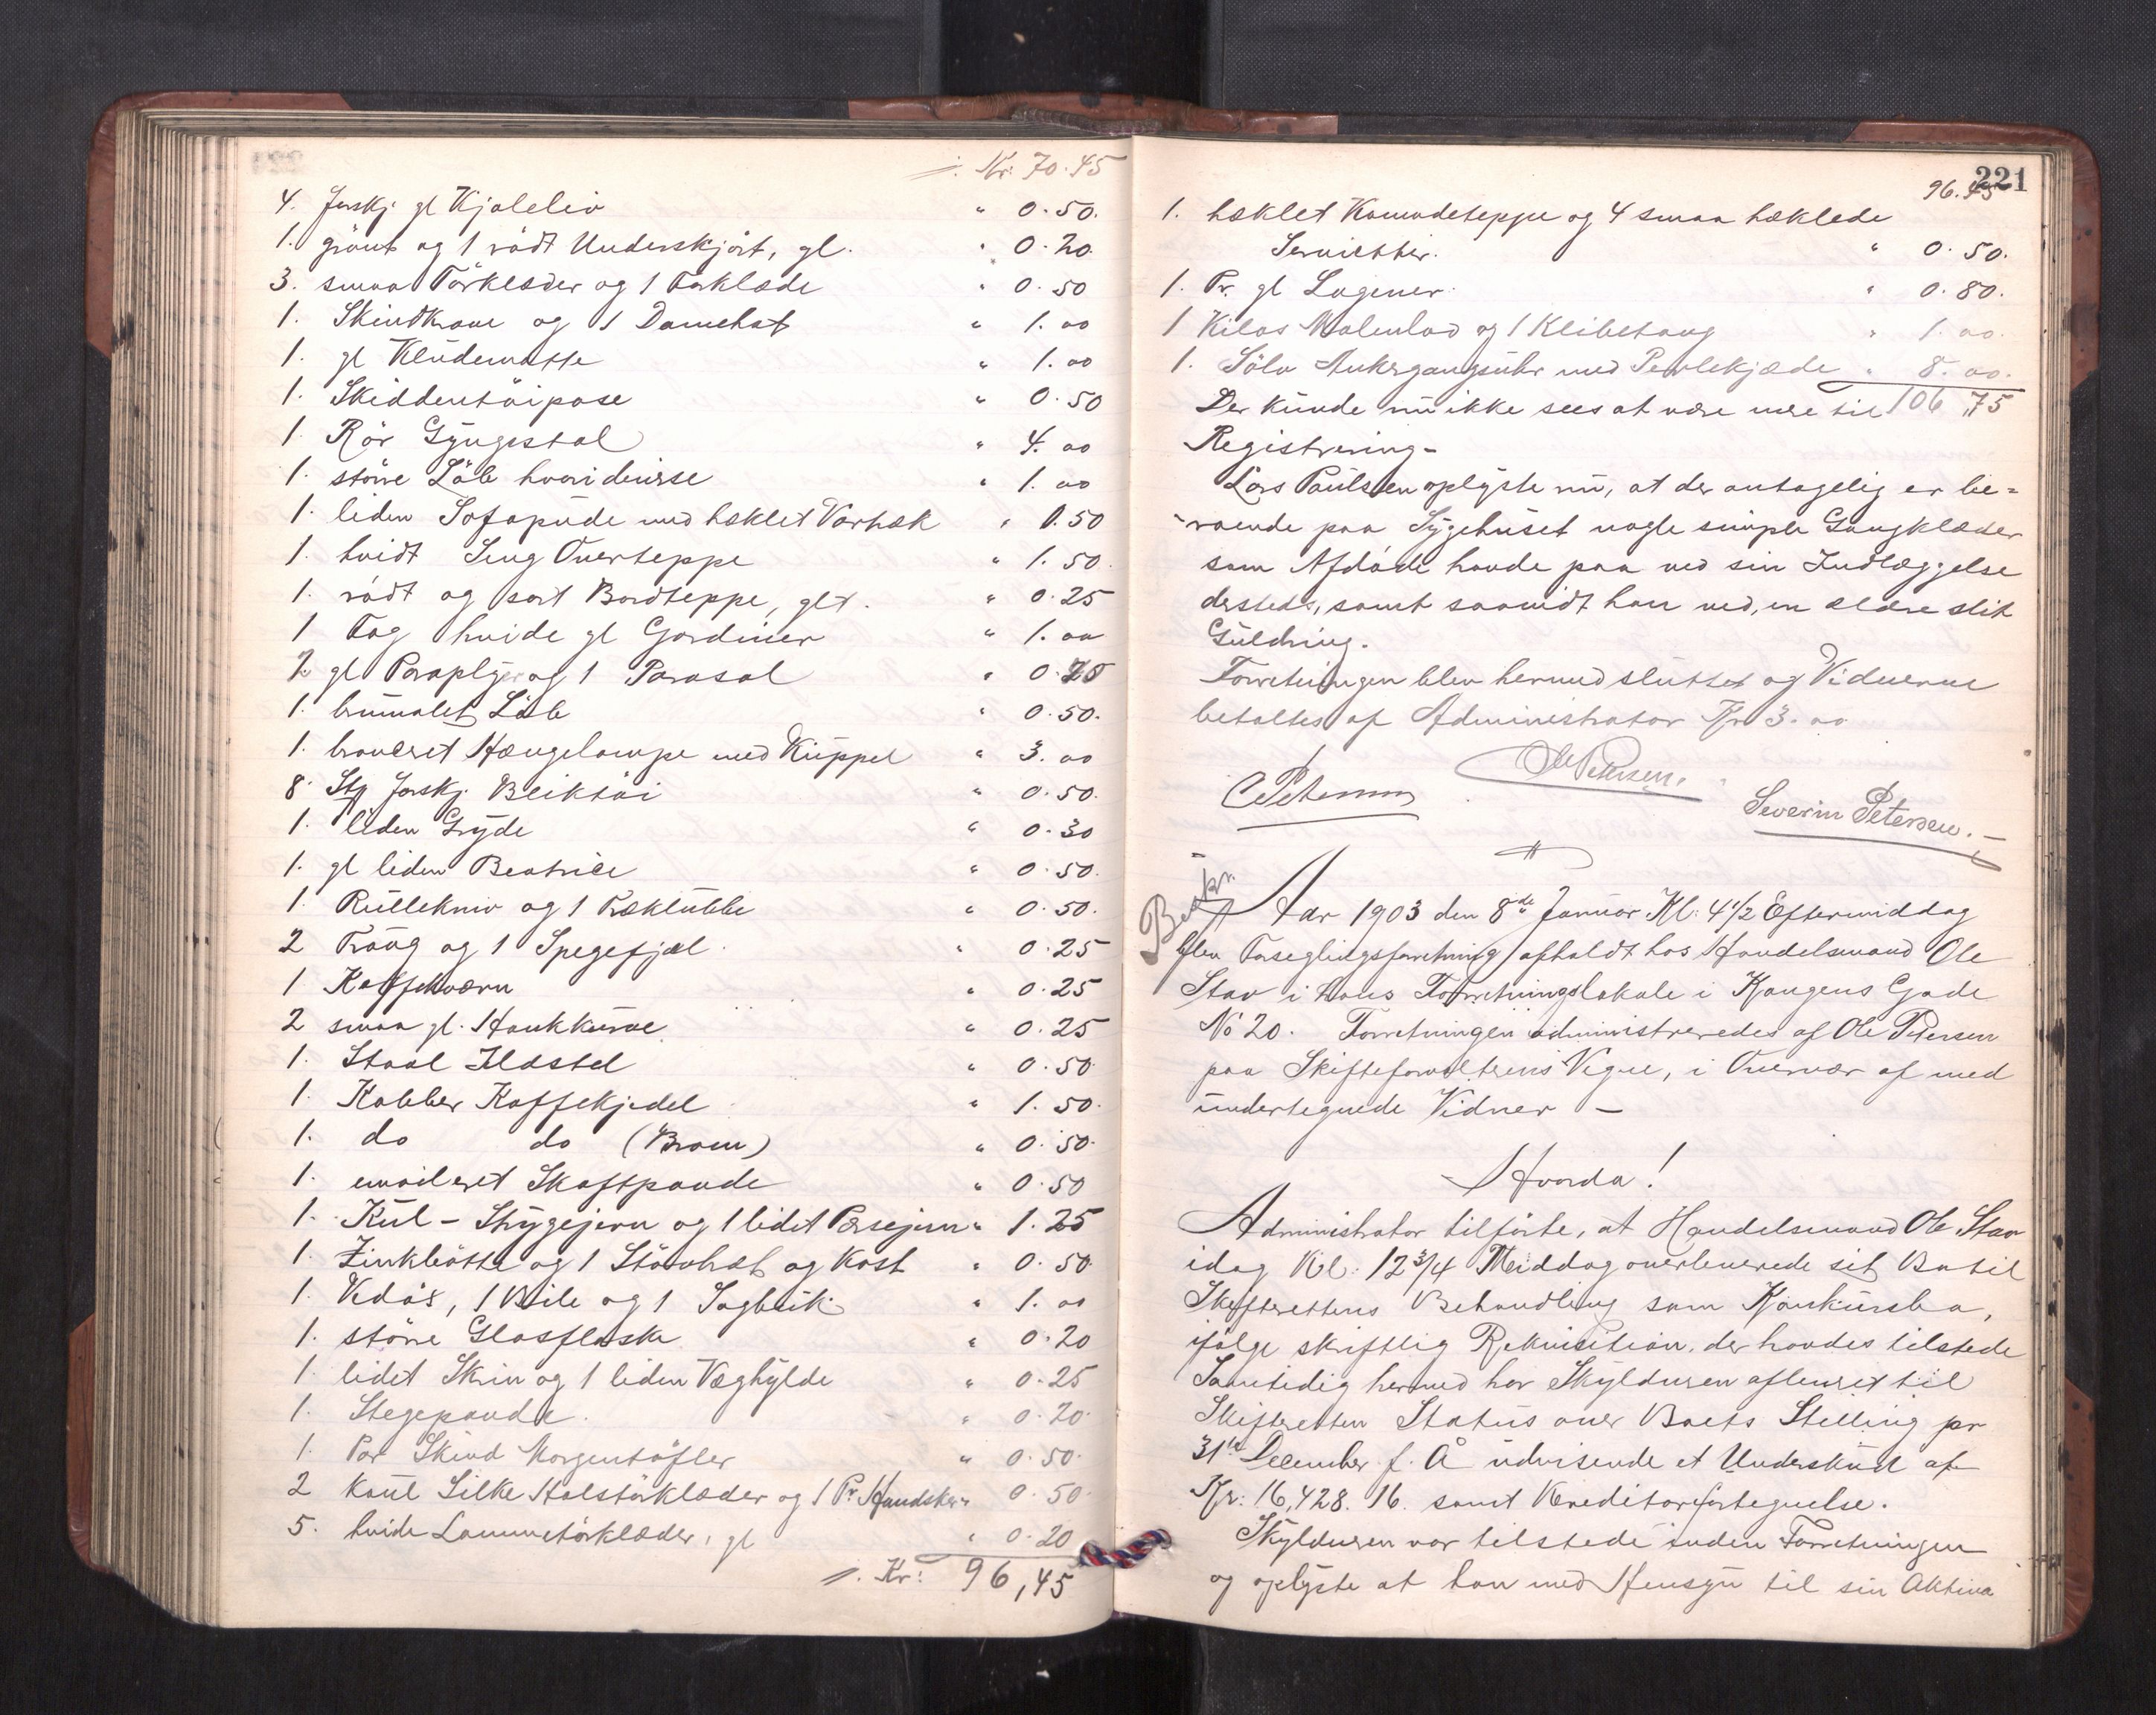 ·/. Kr. 70.45
4. forskj. gl Kjoleliv " 0.50.
1. grönt og 1 rödt Underskjört, gl. " 0.20
3. smaa Törklæder og 1 Forklæde " 0.50
1. Skindkrave og 1 Damehat " 1.00
1. gl Kludematte " 1.00
1. Skiddentöipose " 0.50
1 Rör Gyngestol " 4.00
1. större Löb " 1.00
1. liden Sofapude med heklet Varhæk " 0.50
1. hvidt Seng Overteppe " 1.50.
1. rödt og sort Bordteppe, glt. " 0.25
1 Fag hvide gl Gardiner " 1.00
2. gl Paraplyer og 1 Parasol " 0.25
1. brunmalet Löb " 0.50.
1. bronceret Hængelampe med Kuppel " 3.00
8. Stk forskj. Bliktöi " 0.50.
1. liden Gryde " 0.30
1. gl liden Beatrice " 0.50.
1 Rullekniv og 1 Træklubbe " 0.50.
2 Traug og 1 Spegefjæl. " 0.25
1 Kaffekværn " 0.25
2 smaa gl. Hankkurve " 0.25
1. Staal Ildstel " 0.50
1. Kobber Kaffekjedel " 1.50.
1. do do (Brown) " 0.50.
1. emaileret Skaftpande " 0.50
1. Kul-Strygejern og 1 lidet Pressejern " 1.25
1 Zinkbötte og 1 Stövbræt og Kost " 0.50
1. Vedöx, 1 Bile og 1 Sagbuk " 1.00
1. större Glasflaske " 0.20
1. lidet Skrin og 1 liden Væghylde " 0.25
1. Stegepande. " 0.20
1. Par Skind Morgentöfler " 0.50.
2 koul Silke Halstörklæder og 1 Pr. Handsker " 0.50
5. hvide Lommetörklæder, gl " 0.20
·/. Kr: 96,45
221
96.45
1. heklet Kamodeteppe og 4 smaa heklede
Servietter. " 0.50.
1. Pr. gl Lagener. " 0.80.
1 Kilos og 1 Klibetang " 1.00.
1. Sölv Ankergangsuhr med Perlekjæde " 8.00.
Der kunde nu ikke sees at være mere til 106,75
Registrering-
Lars Paulsen oplyste nu, at der antagelig er be=
roende paa Sygehuset nogle simple Gangklæder
som Afdöde havde paa ved sin Indlæggelse
dersteds, samt saavidt han ved, en ældre slik
Guldring.
Forretningen blev hermed sluttet og Vidnerne
betaltes af Administrator Kr 3.00
OlePetersen.
CPetersen
Severin Petersen.-
Beskr.
Aar 1903 den 8de Januar Kl: 4½ Eftermiddag
blev Forseglingsforretning afholdt hos Handelsmand Ole
Stav i hans Forretningslokale i Kongens Gade
No 20. Forretningen administreredes af Ole Petersen
paa Skifteforvalterens Vegne, i Overvær af med
undertegnede Vidner -
Hvorda!
Administrator tilförte, at Handelsmand Ole Stav
idag Kl: 12¾ Middag overleverede sit Bo til
Skifterettens Behandling som Konkursbo,
ifölge skriftlig Rekvisition. der havdes tilstede
Samtidig hermed har Skyldneren afleveret til
Skifteretten Status over Boets Stilling pr
31te December f. Å udvisende et Underskud af
Kr: 16,428.16. samt Kreditorfortegnelse.
Skyldneren var tilstede under Forretningen
og oplyste at han med Hensyn til sin Aktiva